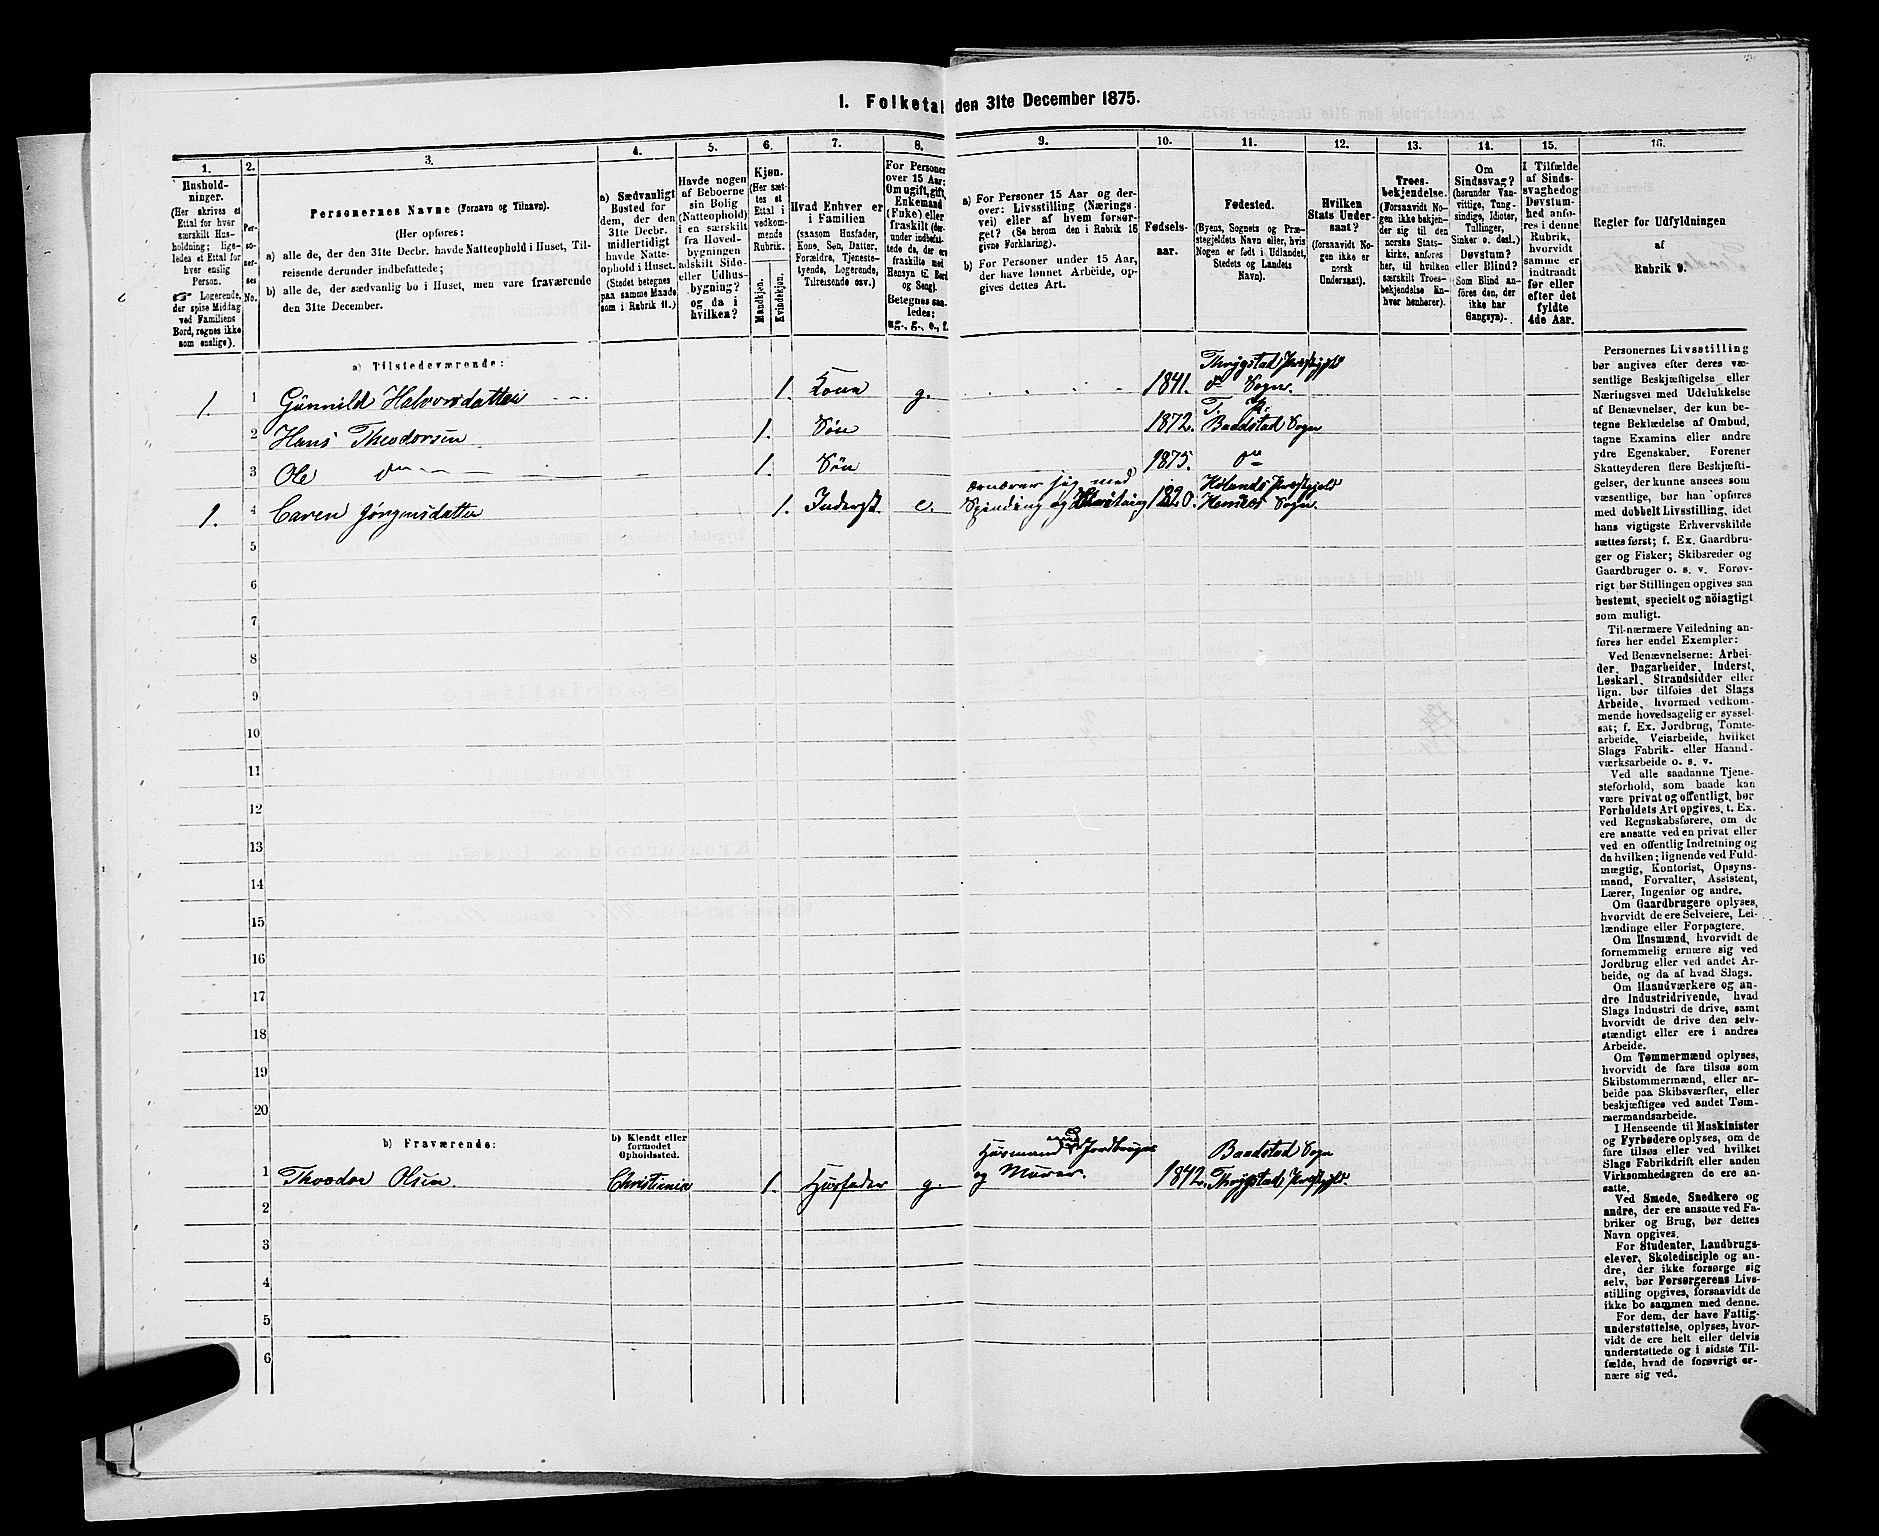 1. Folketal den 31te December 1875.
1.
2.
3.
4.
5.
6.
7.
8.
9.
10.
11.
12.
13.
14.
15.
16.
Hushold-
ninger.
(Her skrives et
Ettal for hver
særskilt Hus-
holdning; lige-
ledes et Ettal for
hver enslig
Person.
☞ Logerende,
der spise Middag
ved Familiens
Bord, regnes ikke
som enslige).
Per-
so-
ner-
nes
No.
Personernes Navne (Fornavn og Tilnavn).
(Her opføres:
a) alle de, der den 31te Decbr. havde Natteophold i Huset, Til-
reisende derunder indbefattede;
b) alle de, der sædvanlig bo i Huset, men vare fraværende
den 31te December.
a) Sædvanligt
Bosted for
dem, der den
31te Decbr.
midlertidigt
havde Natte-
ophold i Huset.
(Stedet betegnes
paa samme Maade
som i Rubrik 11.)
Havde nogen
af Beboerne
sin Bolig
(Natteophold)
i en særskilt
fra Hoved-
bygningen
adskilt Side-
eller Udhus-
bygning?
og da i
hvilken?
Kjøn.
(Her sæt-
tes et
Ettal i
vedkom-
mende
Rubrik.
Mandkjøn.
Kvindekjøn.
Hvad Enhver er
i Familien
(saasom Husfader,
Kone, Søn, Datter,
Forældre, Tjeneste-
tyende, Logerende,
Tilreisende osv.)
For Personer
over 15 Aar:
Om ugift, gift,
Enkemand
(Enke) eller
fraskilt (der-
under indbefat-
tede da, der ere
fraskilte med
Hensyn til Bord
og Seng).
Betegnes saa-
ledes:
ug., g., e., f.
a) For Personer 15 Aar og der-
over: Livsstilling (Nærings-
vei) eller af hvem forsør-
get? (Se herom den i Rubrik 16
givne Forklaring).
b) For Personer under 15 Aar,
der have lønnet Arbeide, op-
gives dettes Art.
Fødsels-
aar.
Fødested.
(Byens, Sognets og Præ-
stegjeldets Navn eller, hvis
Nogen er født i Udlandet,
Stedets og Landets
Navn).
Hvilken
Stats Under-
saat?
(forsaavidt No-
gen ikke er
norsk
Undersaat).
Troes-
bekjendelse.
(Forsaavidt No-
gen ikke bekjen-
der sig til den
norske Stats-
kirke, anføres
her, til hvilken
særskilt Troes-
bekjendelse En-
hver henhører).
Om
Sindssvag?
(herunder Van-
vittige, Tung-
sindige, Idioter,
Tullinger,
Sinker o. desl.)
Døvstum?
eller Blind?
(Som Blind an-
føres den, der
ikke har
Gangsyn).
I Tilfælde
af Sinds-
svaghed og
Døvstum-
hed anfø-
res i denne
Rubrik,
hvorvidt
samme er
indtraadt
før eller
efter det
fyldte
4de Aar.
Regler for Udfyldningen
af
Rubrik 9.
a) Tilstedeværende:
1. 1 Gunnild Halvorsdatter 1. Kone g. 1841. Thrygstad Præstegjeld do Sogn.
2 Hans Theodorsen 1. Søn 1872. T. P. Baadstad Sogn
3 Ole do 1. Søn 1875. do
1. 4 Caren Jørgensdatter 1. Inderst e. ernærer sig med Spinding og 1820. Hølands Præstegjeld Hemnes Sogn.
5
6
7
8
9
10
11
12
13
14
15
16
17
18
19
20
b) Fraværende:
b) Kjendt eller
formodet
Opholdssted.
1 Theodor Olsen. Christiania 1. Husfader g. Husmand med Jordbruget og Murer. 1842. Baadstad Sogn Thrygstad Præstegjld.
2
3
4
5
6
Personernes Livsstilling
bør angives efter deres væ-
sentlige Beskjæftigelse eller
Næringsvei med Udelukkelse
af Benævnelser, der kun be-
tegne Beklædelse af Ombud,
tagne Examina eller andre
ydre Egenskaber. Forener
Skatteyderen flere Beskjæfti-
gelser, der kunne ansees som
væsentlige, bør han opføres
med dobbelt Livsstilling, idet
hans vigtigste Erhvervskilde
sættes først; f. Ex. Gaardbru-
ger og Fisker; Skibsreder og
Gaardbruger o. s. v. Forøv-
rigt bør Stillingen opgives saa
bestemt, specielt og nöiagtigt
som muligt.
Til nærmere Veiledning an-
føres her endel Exempler:
Ved Benævnelserne: Arbei-
der, Dagarbeider, Inderst,
Løskarl, Strandsidder eller
lign. bør tilføies det Slags
Arbeide, hvormed vedkom-
mende hovedsagelig er syssel-
sat; f. Ex. Jordbrug, Tomte-
arbeide, Veiarbeide, hvilket
Slags Fabrik- eller Haand-
værksarbeide o. s. v.
Ved alle saadanne Tjene-
steforhold, som baade kan
være privat og offentligt, bør
Forholdets Art opgives, t. Ex.
ved Regnskabsførere, om de
ere ansatte ved en privat eller
ved en offentlig Indretning og
da hvilken; lignende ved Fuld-
mægtig, Kontorist, Opsyns-
mand, Forvalter, Assistent,
Lærer, Ingeniør og andre.
Om Gaardbrugere oplyses,
hvorvidt de ere Selveiere, Lei-
lændinge eller Forpagtere.
Om Husmænd, hvorvidt de
fornemmelig ernære sig ved
Jordbrug eller ved andet Ar-
beide, og da af hvad Slags.
Om Haandværkere og an-
dre Industridrivende, hvad
Slags Industri de drive, samt
hvorvidt de drive den selv-
stændigt eller ere i andres
Arbeide.
Om Tømmermænd oplyses,
hvorvidt de fare tilsøs som
Skibstømmermænd, eller ar-
beide paa Skibsværfter, eller
beskjæftiges ved andet Tøm-
mermandsarbeide.
I Henseende til Maskinister
og Fyrbødere oplyses, om de
fare tilsøs eller ved hvilket
Slags Fabrikdrift eller anden
Virksomhedsgren de ere an-
satte.
Ved Smede, Snedkere og
andre, der ere ansatte ved Fa-
briker og Brug, bør dettes
Navn opgives.
For Studenter, Landbrugs-
elever, Skoledisciple og an-
dre, der ikke forsørge sig
selv, bør Forsørgerens Livs-
stilling opgives, forsaavidt de
ikke bo sammen med denne.
For dem, der have Fattig-
understøttelse, oplyses, hvor-
vidt de ere helt eller delvis
understøttede og i sidste Til-
fælde, hvad de forøvrigt er-
nære sig ved.